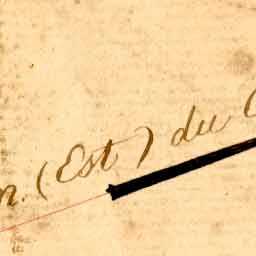 n. (Est) du